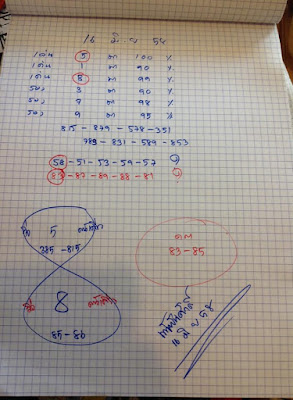 16 มิ.ย 54
เด่น 5 ต 100 %
เด่น 1 ต 90 %
เด่น 8 ต 99 %
รอง 3 ต 90 %
รอง 7 ต 98 %
รอง 9 ต 95 %
815 - 879 - 578 - 351
789 - 831 - 589 - 853
58 - 51 - 53 - 59 - 57
83 - 87 - 89 - 88 - 81
5
385 - 815
83 - 85
8
85 - 86
16 มิ.ย 54